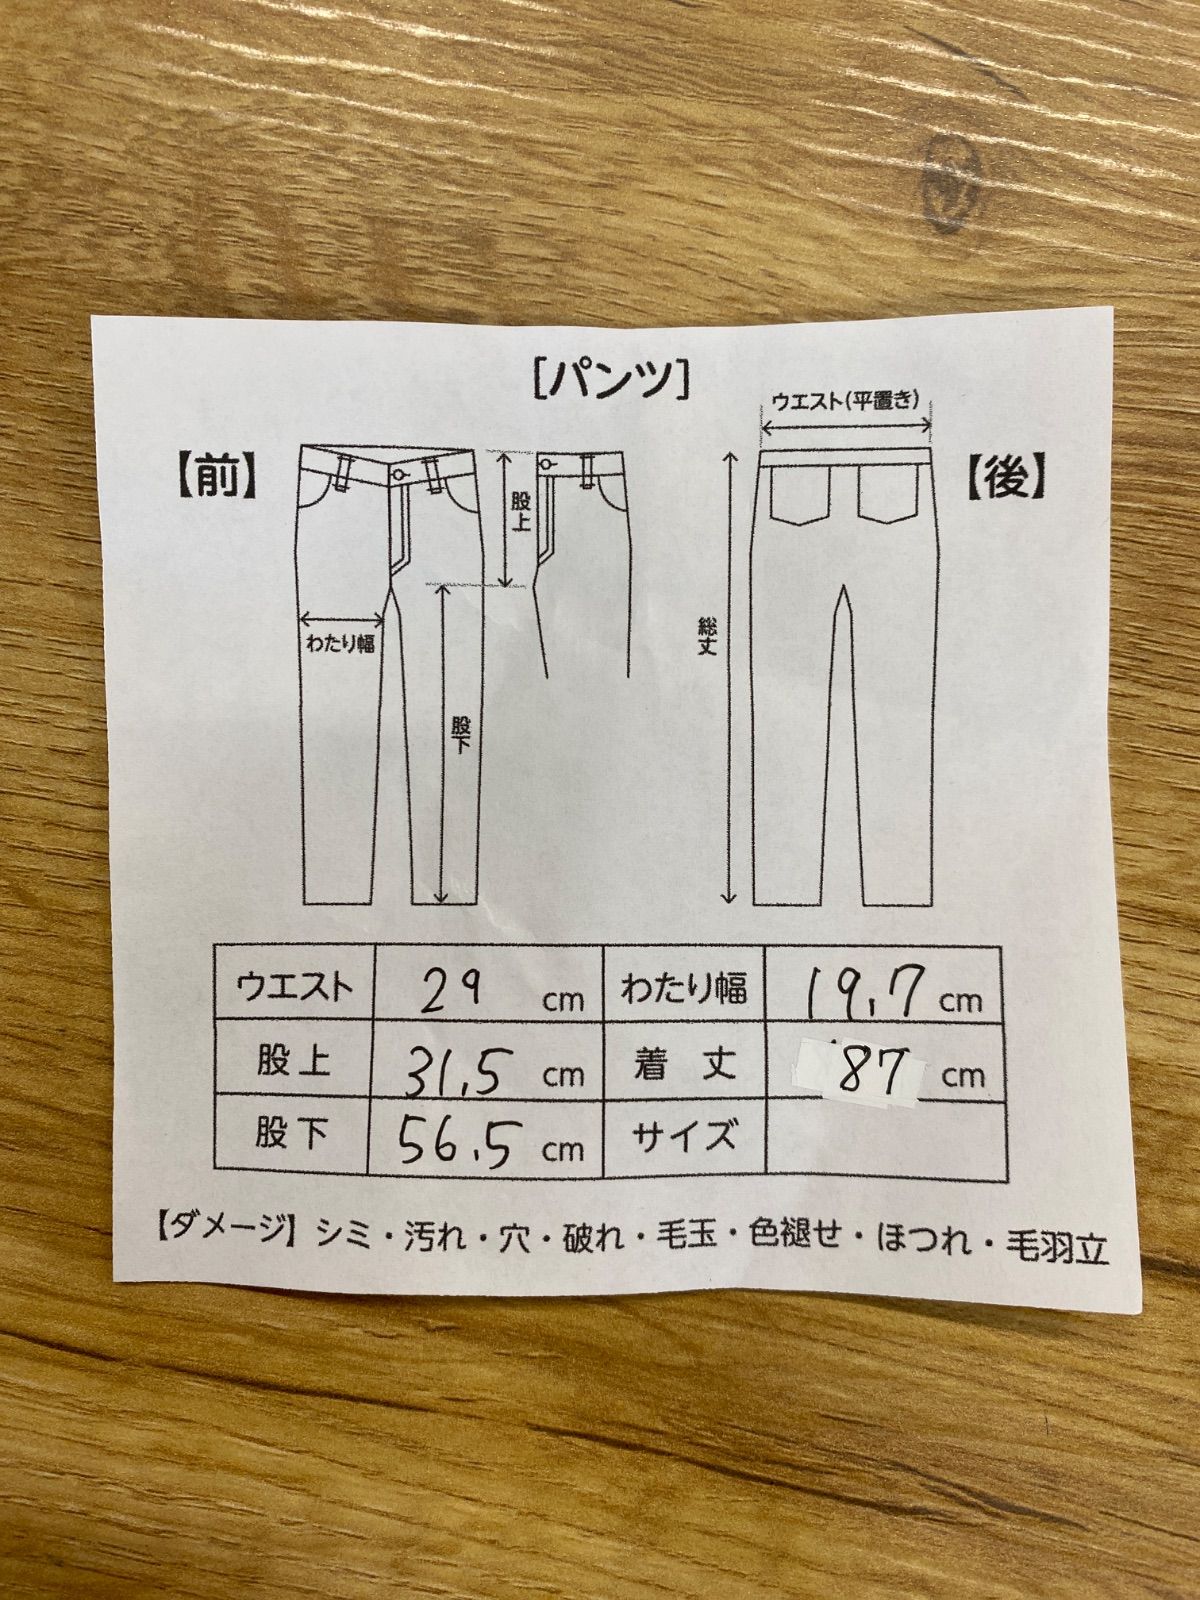 [パンツ]
ウエスト(平置き)
【前】
【後】
股上
わたり幅
総丈
股下
ウエスト 29 cm わたり幅 19.7 cm
股上 31.5 cm 着 丈 87 cm
股下 56.5 cm サイズ
【ダメージ】シミ・汚れ・穴・破れ・毛玉・色褪せ・ほつれ・毛羽立